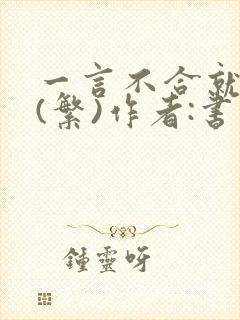 一言不合就
(繁)作者:書
鍾靈呀